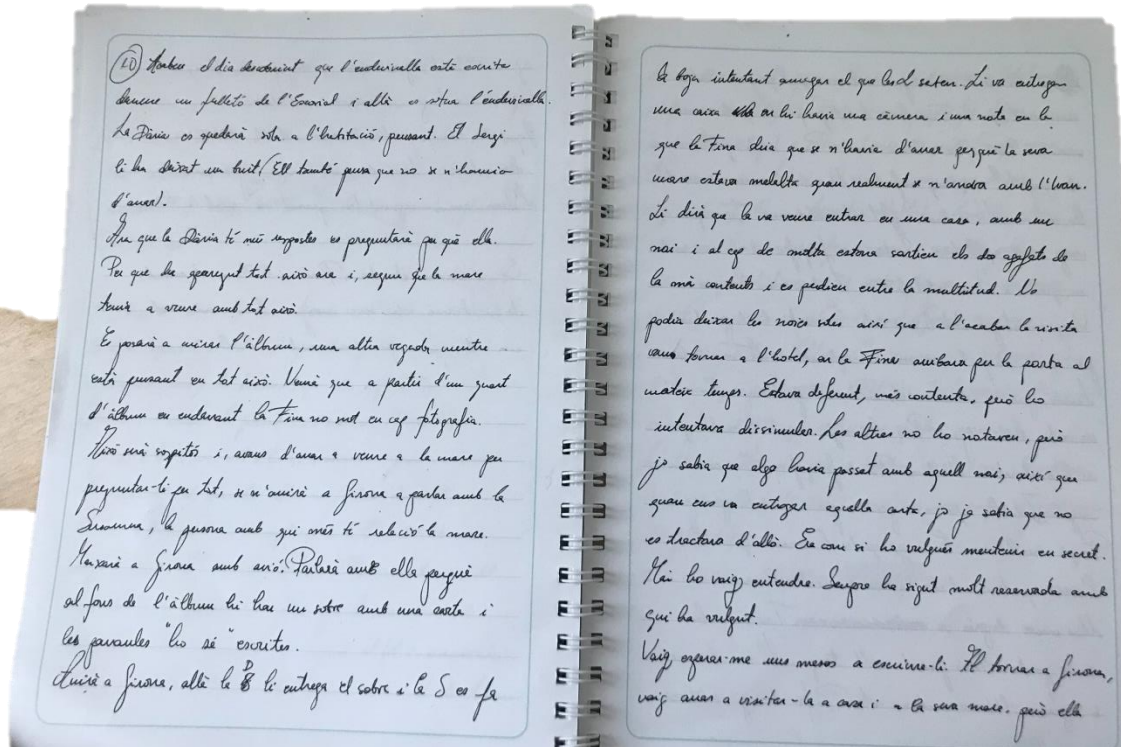 10 Acaben el dia descobrint que l'endevinalla està escrita
darrere un fulletó de l'Escorial i allà es situa l'endevinalla.
La Dària es quedarà sola a l'habitació, pensant. El Sergi
li ha deixat un buit (Ell també pensa que no se n'hauria
d'anar).
Ara que la Dària té més respostes es preguntarà per què ella.
Per que ha aparegut tot això ara i, segur que la mare
tenia a veure amb tot això.
Es posarà a mirar l'àlbum, una altra vegada mentre
està pensant en tot això. Veurà que a partir d'un quart
d'àlbum en endavant la Fina no surt en cap fotografia.
Això serà sospitós i, abans d'anar a veure a la mare per
preguntar-li per tot, se n'anirà a Girona a parlar amb la
Susanna, la persona amb qui més té relació la mare.
Marxarà a Girona amb avió. Parlarà amb ella perquè
al fons de l'àlbum hi hau un sobre amb una carta i
les paraules "ho sé" escrites.
Anirà a Girona, allà la D li entrega el sobre i la S es fa
la boja intentant amagar el que
Li va entregar
una caixa on hi havia una càmera i una nota en la
que la Fina deia que se n'havia d'anar perquè la seva
mare estava malalta quan realment se n'anava amb l'Ivan.
Li dirà que la va veure entrar en una casa, amb un
noi i al cap de molta estona sortien els dos agafats de
la mà contents i es perdien entre la multitud. No
podia deixar les noies soles així que a l'acabar la visita
vam tornar a l'hotel, on la Fina arribava per la porta al
mateix temps. Estava diferent, més contenta, però ho
intentava dissimular. Les altres no ho notaven, però
jo sabia que algo havia passat amb aquell noi, així que
quan ens va entregar aquella carta, jo ja sabia que no
es tractava d'allò. Era com si ho volgués mantenir en secret.
Mai ho vaig entendre. Sempre ha sigut molt reservada amb
qui ha volgut.
Vaig esperar-me uns mesos a escriure-li. Al tornar a Girona,
vaig anar a visitar-la a casa i a la seva mare, però ella